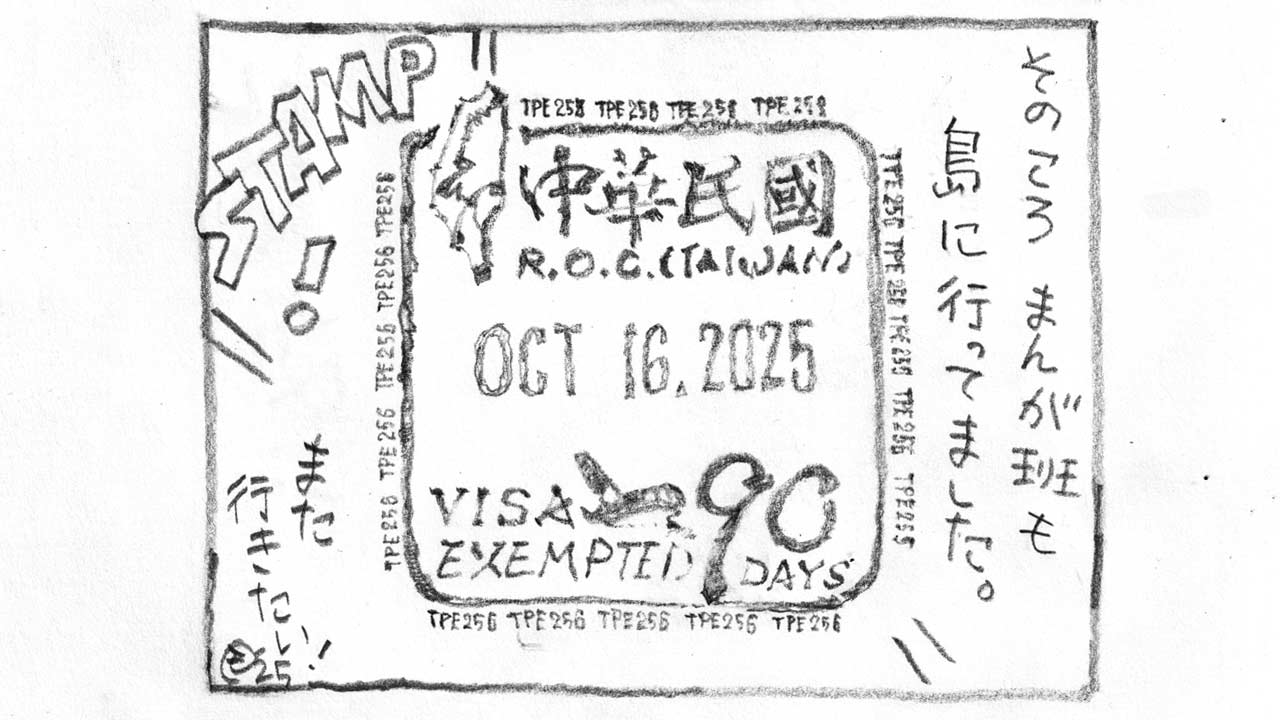 そのころ まんが班も
島に行ってました。
STAMP!
TPE258 TPE256 TPE258 TPE258
中華民國
R.O.C.(TAIWAN)
OCT 16.2025
VISA 90
EXEMPTED DAYS
TPE256 TPE256 TPE256 TPE256 TPE256
TPE256 TPE256 TPE256 TPE256 TPE256
また
行きたい!!
25